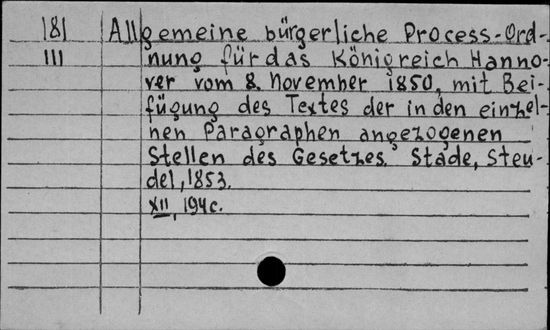 181 Allgemeine bürgerliche Process-Ord-
III nung für das Königreich Hanno-
ver vom 8. November 1850, mit Bei-
fügung des Textes der in den einzel-
nen Paragraphen angezogenen
Stellen des Gesetzes. Stade, Steu-
del, 1853.
XII, 194c.